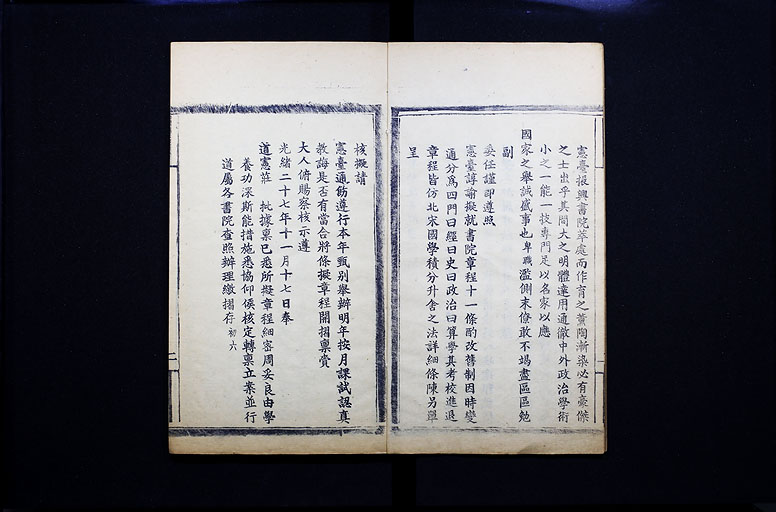 憲臺振興書院萃處而作育之薰陶漸染必有豪傑
之士出乎其間大之明體達用通徹中外政治學術
小之一能一技專門足以名家以應
國家之舉誠盛事也卑職濫側末僚敢不竭盡區區勉
副
委任謹卽遵照
憲臺諄諭擬就書院章程十一條酌改舊制因時變
通分爲四門曰經曰史曰政治曰算學其考校進退
章程皆仿北宋國學積分升舍之法詳細條陳另單
呈
核擬請
憲臺通飭遵行本年甄別舉辦明年按月課試認真
教誨是否有當合將條擬章程開摺稟賫
大人俯賜察核示遵
光緒二十七年十一月十七日奉
道憲莊 批據稟已悉所擬章程細密周妥良由學
養功深斯能措施悉協仰侯核定轉稟立案並行
道屬各書院查照辦理繳摺存初六
二
二